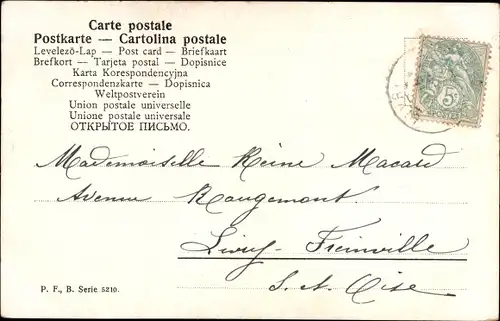 Carte postale
Postkarte — Cartolina postale
Levelező-Lap — Post card — Briefkaart
Brefkort — Tarjeta postal — Dopisnice
Karta Korespondencyjna
Correspondenzkarte — Dopisnica
Weltpostverein
Union postale universelle
Unione postale universale
ОТКРЫТОЕ ПИСЬМО.
5
Mademoiselle Reine Macard
Avenue Rougemont.
Livry-Freinville
S. et Oise.
P. F., B. Serie 5210.